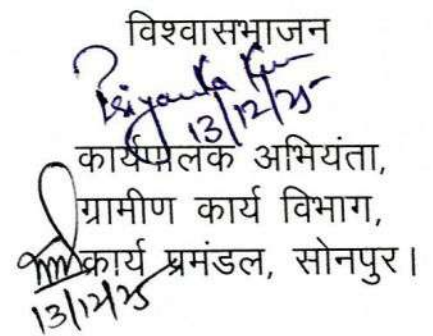 विश्वासभाजन
Priyanka Kum
13/12/25
कार्यपालक अभियंता,
ग्रामीण कार्य विभाग,
कार्य प्रमंडल, सोनपुर।
13/12/25